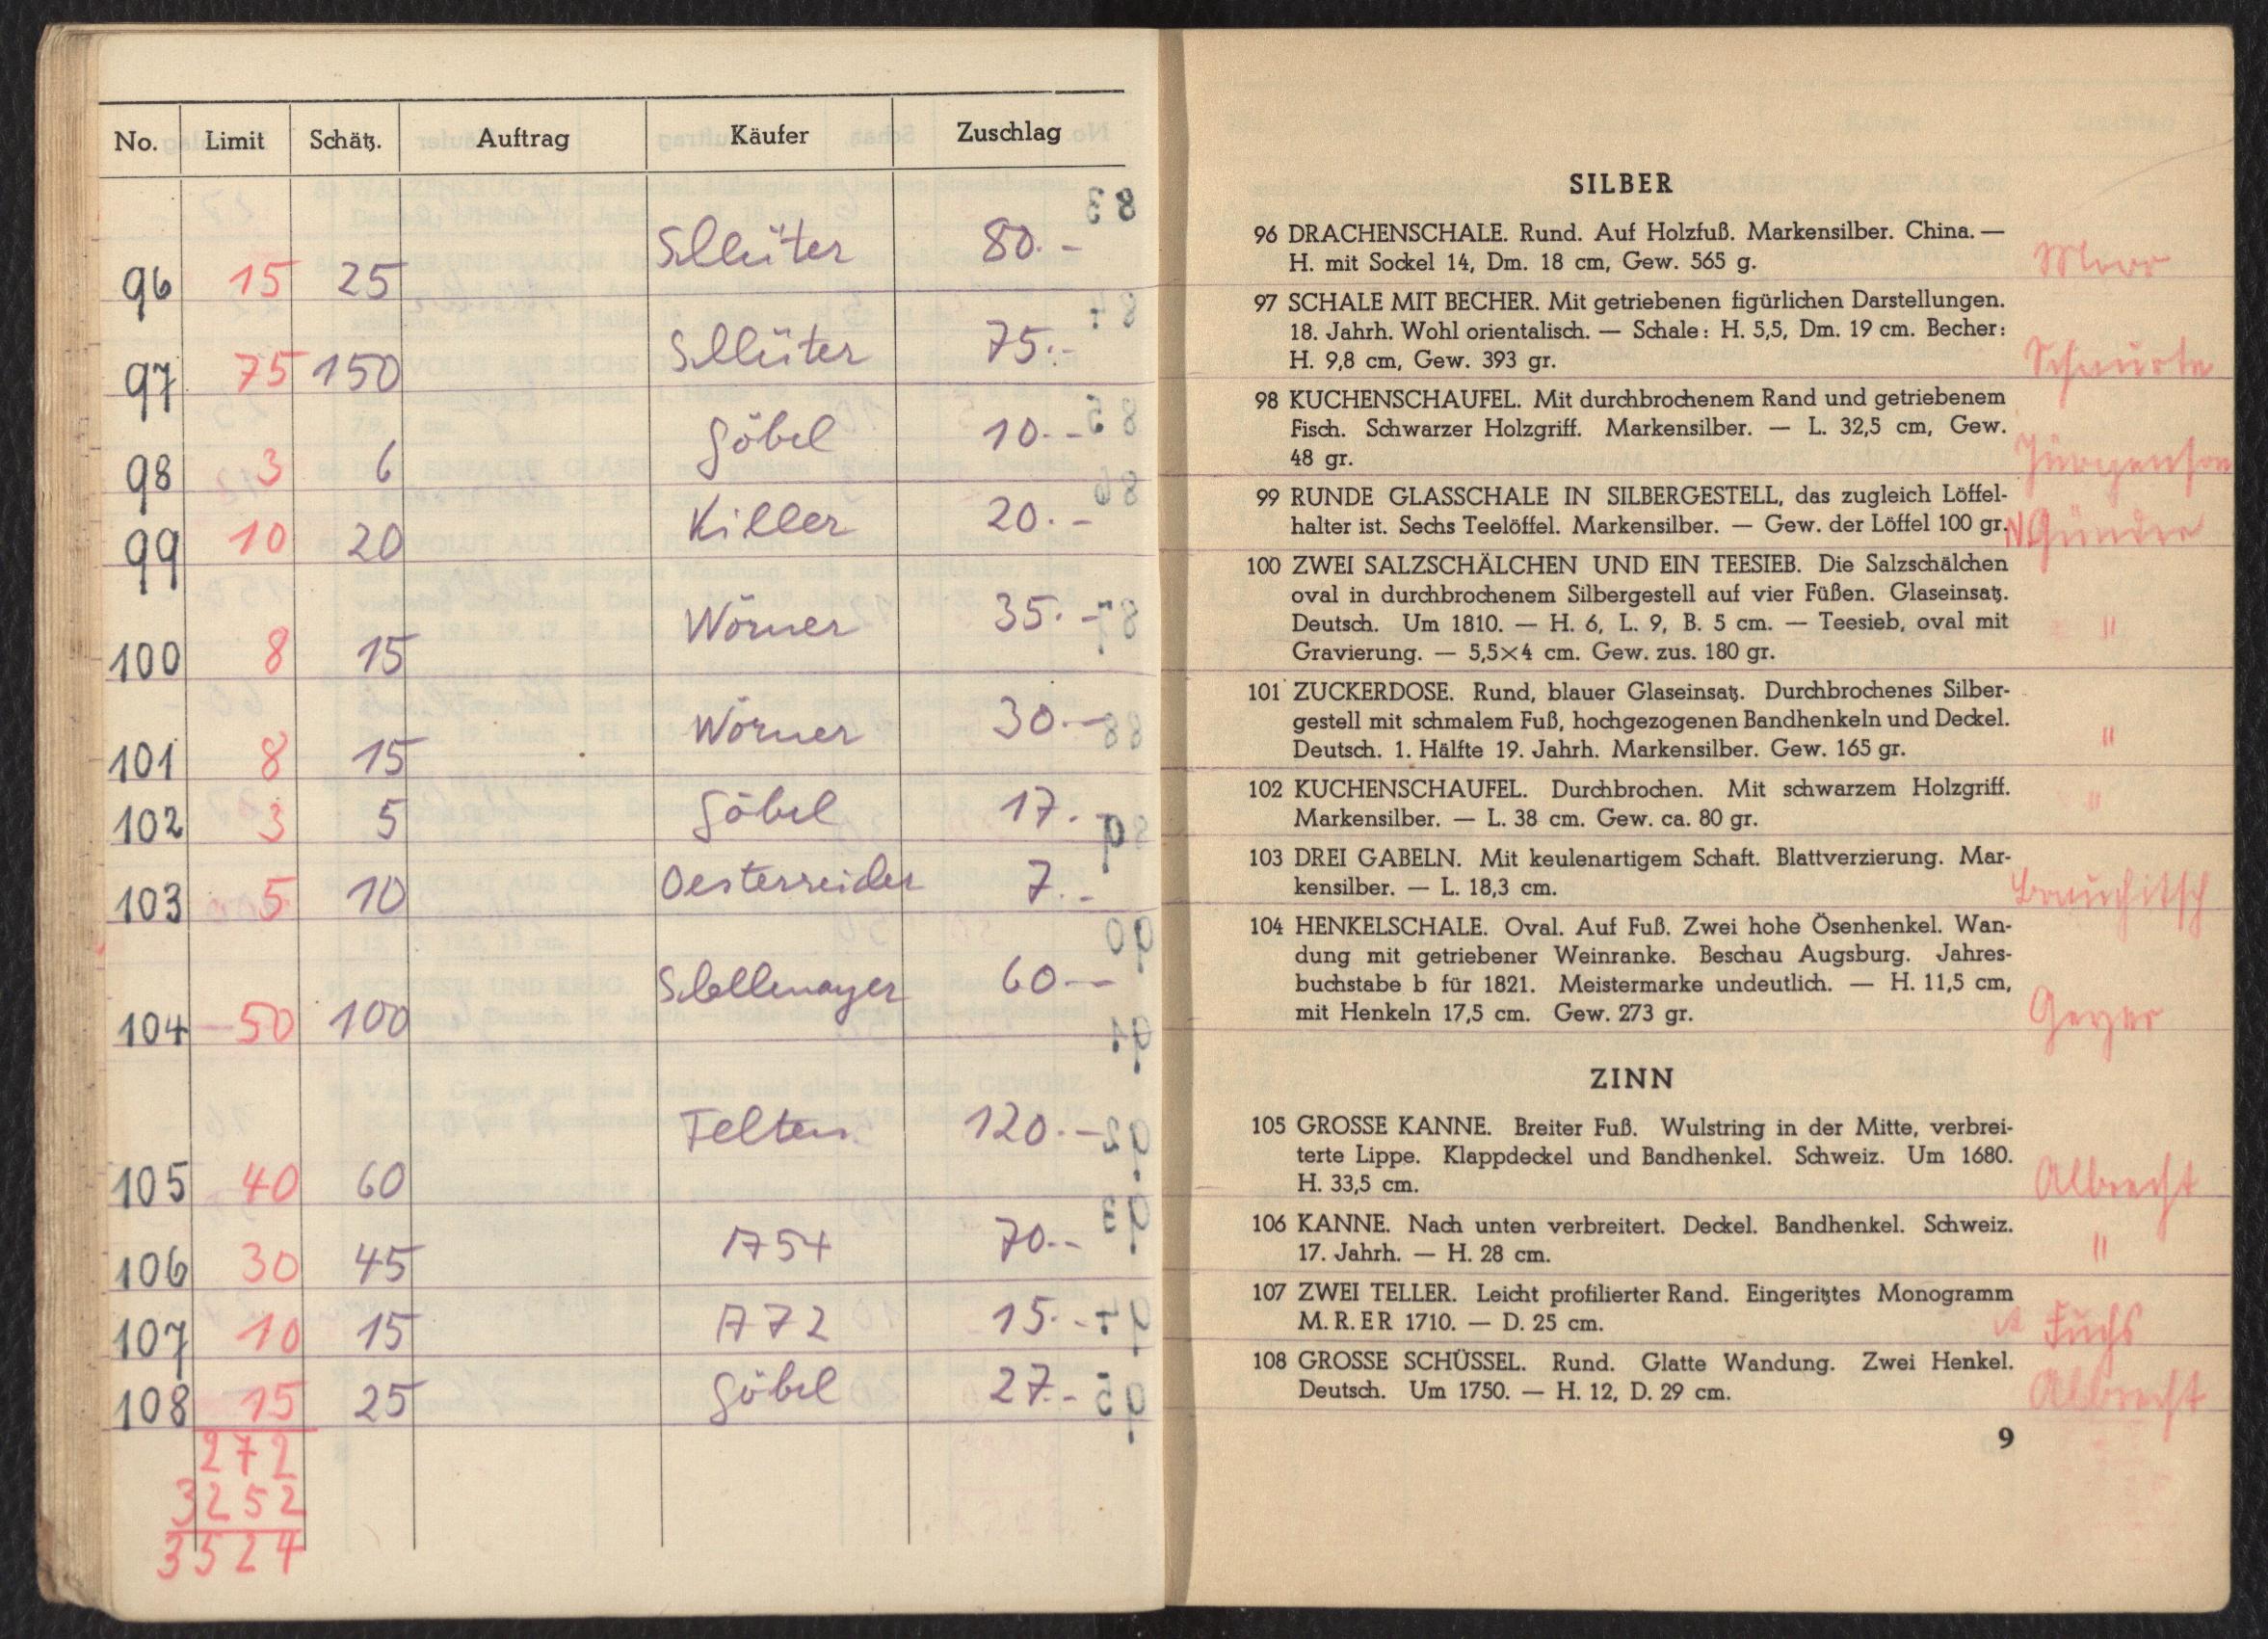 No. Limit Schätz. Auftrag Käufer Zuschlag
96 15 25 Schlüter 80.-
97 75 150 Schlüter 75.-
98 3 6 Göbel 10.-
99 10 20 Killer 20.-
100 8 15 Wörner 35.-
101 8 15 Wörner 30.-
102 3 5 Göbel 17.-
103 5 10 Oesterreicher 7.-
104 50 100 60.-
105 40 60 Felten 120.-
106 30 45 1754 70.-
107 10 15 1772 15.-
108 15 25 Göbel 27.-
272
3252
3524
SILBER
96 DRACHENSCHALE. Rund. Auf Holzfuß. Markensilber. China. —
H. mit Sockel 14, Dm. 18 cm, Gew. 565 g.
97 SCHALE MIT BECHER. Mit getriebenen figürlichen Darstellungen.
18. Jahrh. Wohl orientalisch. — Schale: H. 5,5, Dm. 19 cm. Becher:
H. 9,8 cm, Gew. 393 gr.
98 KUCHENSCHAUFEL. Mit durchbrochenem Rand und getriebenem
Fisch. Schwarzer Holzgriff. Markensilber. — L. 32,5 cm, Gew.
48 gr.
99 RUNDE GLASSCHALE IN SILBERGESTELL, das zugleich Löffel-
halter ist. Sechs Teelöffel. Markensilber. — Gew. der Löffel 100 gr.
100 ZWEI SALZSCHÄLCHEN UND EIN TEESIEB. Die Salzschälchen
oval in durchbrochenem Silbergestell auf vier Füßen. Glaseinsatz.
Deutsch. Um 1810. — H. 6, L. 9, B. 5 cm. — Teesieb, oval mit "
Gravierung. — 5,5×4 cm. Gew. zus. 180 gr.
101 ZUCKERDOSE. Rund, blauer Glaseinsatz. Durchbrochenes Silber-
gestell mit schmalem Fuß, hochgezogenen Bandhenkeln und Deckel.
Deutsch. 1. Hälfte 19. Jahrh. Markensilber. Gew. 165 gr. "
102 KUCHENSCHAUFEL. Durchbrochen. Mit schwarzem Holzgriff. "
Markensilber. — L. 38 cm. Gew. ca. 80 gr.
103 DREI GABELN. Mit keulenartigem Schaft. Blattverzierung. Mar-
kensilber. — L. 18,3 cm. Brauchitsch
104 HENKELSCHALE. Oval. Auf Fuß. Zwei hohe Ösenhenkel. Wan-
dung mit getriebener Weinranke. Beschau Augsburg. Jahres-
buchstabe b für 1821. Meistermarke undeutlich. — H. 11,5 cm,
mit Henkeln 17,5 cm. Gew. 273 gr. Geyer
ZINN
105 GROSSE KANNE. Breiter Fuß. Wulstring in der Mitte, verbrei-
terte Lippe. Klappdeckel und Bandhenkel. Schweiz. Um 1680.
H. 33,5 cm. Albrecht
106 KANNE. Nach unten verbreitert. Deckel. Bandhenkel. Schweiz.
17. Jahrh. — H. 28 cm. "
107 ZWEI TELLER. Leicht profilierter Rand. Eingeritztes Monogramm
M. R. ER 1710. — D. 25 cm. Fuchs
108 GROSSE SCHÜSSEL. Rund. Glatte Wandung. Zwei Henkel.
Deutsch. Um 1750. — H. 12, D. 29 cm. Albrecht
9